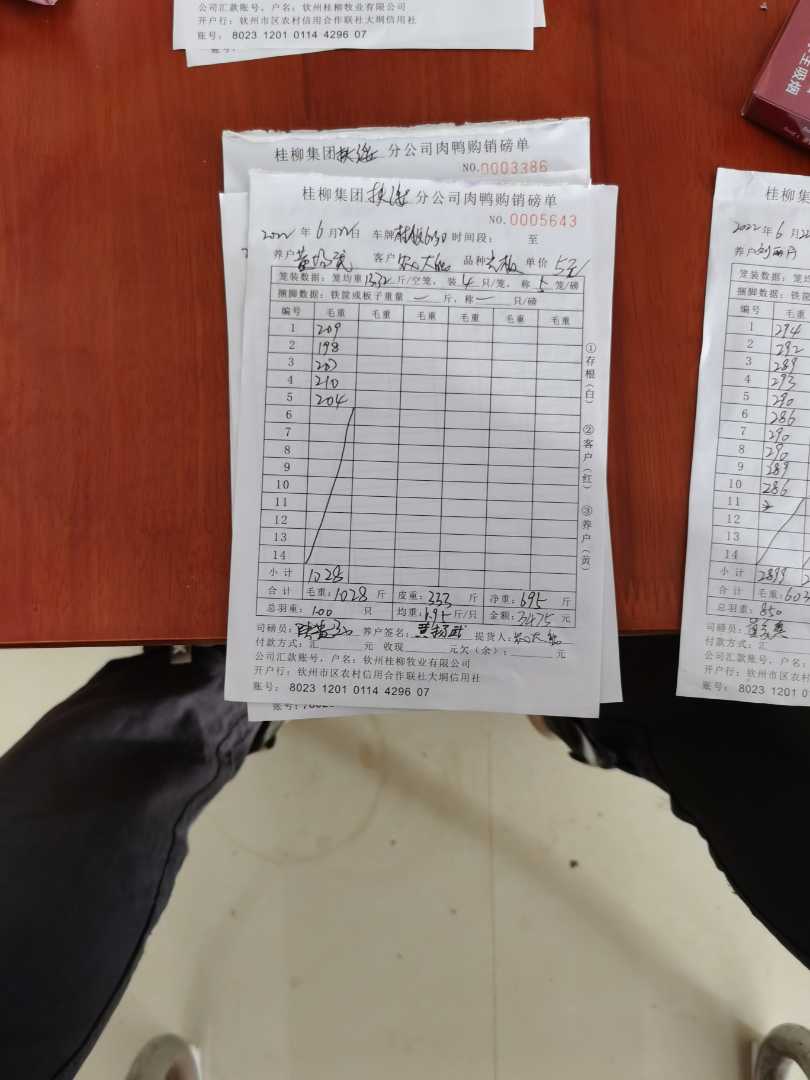 公司汇款账号、户名：钦州桂柳牧业有限公司
开户行：钦州市区农村信用合作联社大垌信用社
账号： 8023 1201 0114 4296 07
账号：
生吸烟
桂柳集团 分公司肉鸭购销磅单
NO.0003386
桂柳集团 分公司肉鸭购销磅单
NO.0005643
2022年6月22日 车牌 时间段： 至
养户 客户 品种 单价 5元
笼装数据：笼均重 斤/空笼，装 4 只/笼，称 5 笼/磅
捆脚数据：铁筐或板子重量 一 斤，称 一 只/磅
编号 毛重 毛重 毛重 毛重 毛重 毛重
1 209
2 198
3 207
4 210
5 204
6
7
8
9
10
11
12
13
14
小计 1028
合计 毛重：1028 斤 皮重：333 斤 净重：695 斤
总羽重： 100 只 均重：6.95 斤/只 金额：3475 元
司磅员： 养户签名： 提货人：
付款方式：汇 元 收现 元欠（余）： 元
公司汇款账号、户名：钦州桂柳牧业有限公司
开户行：钦州市区农村信用合作联社大垌信用社
账号： 8023 1201 0114 4296 07
账号：
①存根（白） ②客户（红） ③养户（黄）
桂柳集
2022年6月22
养户
笼装数据：笼
捆脚数据：铁
编号 毛重
1 294
2 292
3 289
4 293
5 290
6 286
7 290
8 290
9 289
10 286
11
12
13
14
小计 2899
合计 毛重：603
总羽重： 850
司磅员：
付款方式：汇
公司汇款账号、户
开户行：钦州市区农村
账号： 8023 1201 01